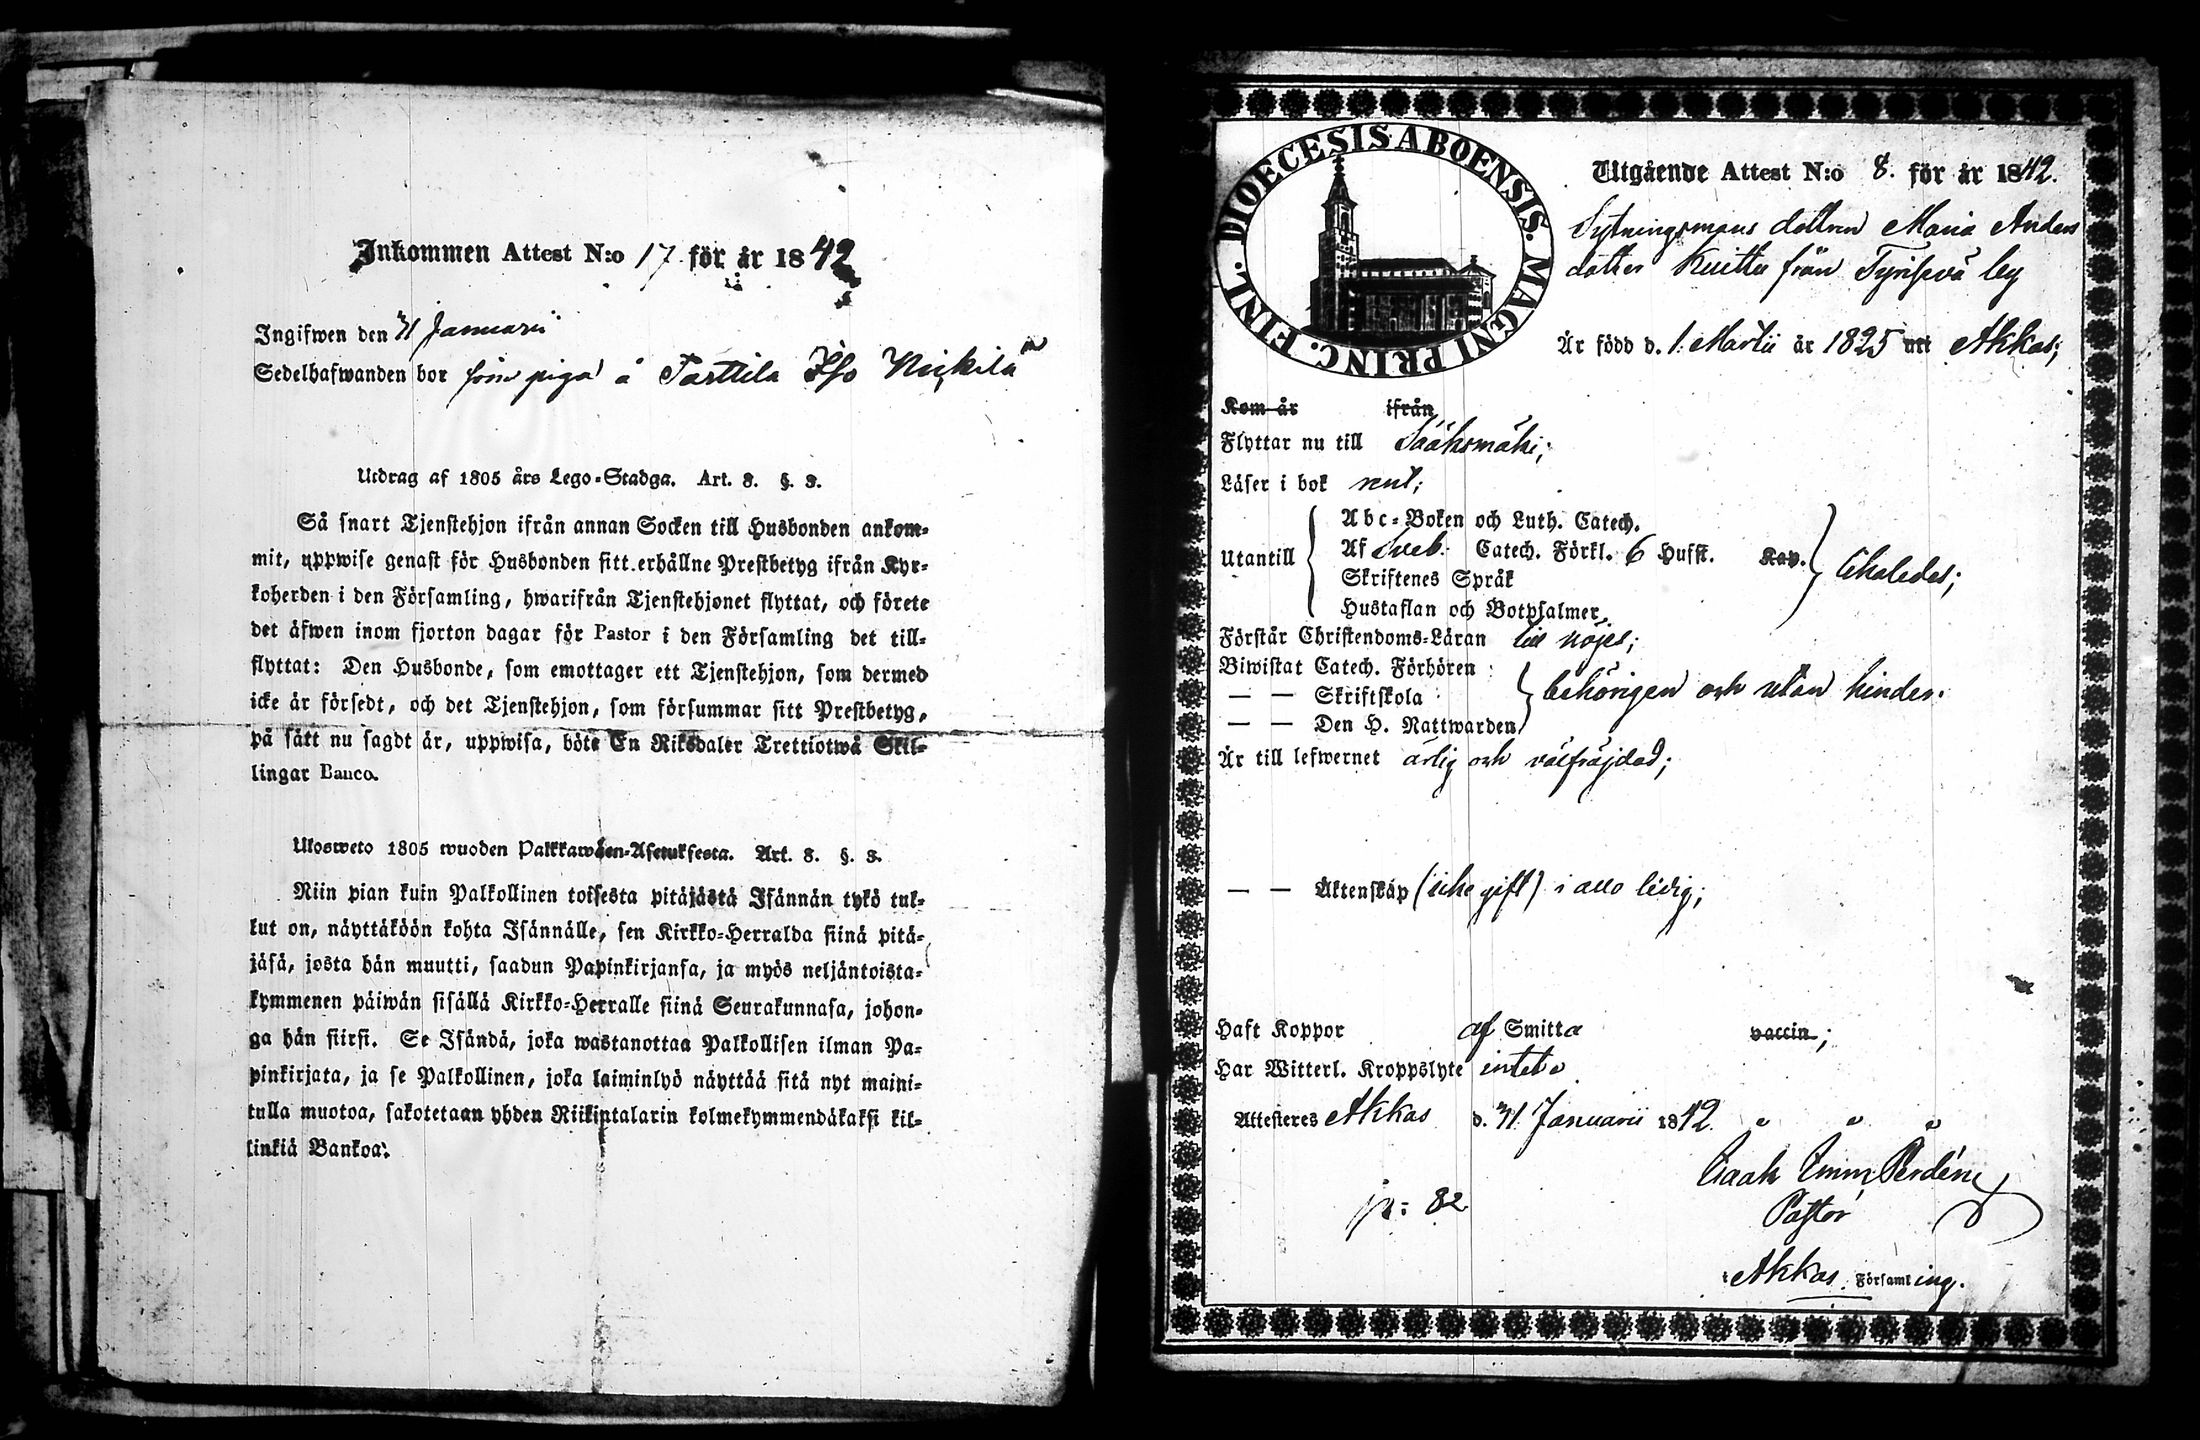 Inkommen Attest N:o 17 för år 1842
Ingifwen den 31 Januarii
Sedelhafwanden bor som piga å Tarttila Iso Nickilä
Utdrag af 1805 års Lego-Stadga. Art. 8. §. 3.
Så snart Tjenstehjon ifrån annan Socken till Husbonden ankom-
mit, uppwise genast för Husbonden sitt erhållne Prestbetyg ifrån Kyr-
koherden i den Församling, hwarifrån Tjenstehjonet flyttat, och förete
det äfwen inom fjorton dagar för Pastor i den Församling det till-
flyttat: Den Husbonde, som emottager ett Tjenstehjon, som dermed
icke är försedt, och det Tjenstehjon, som försummar sitt Prestbetyg,
på sätt nu sagdt är, uppwisa, böte En Riksdaler Trettiotwå Skil-
lingar Banco.
Ulosweto 1805 wuoden Palkkawäen-Asetuksesta. Art. 8. §. 3.
Niin pian kuin Palkollinen toisesta pitäjästä Isännän tykö tul-
lut on, näyttäköön kohta Isännälle, sen Kirkko-Herralda siinä pitä-
jäsä, josta hän muutti, saadun Papinkirjansa, ja myös neljäntoista-
kymmenen päiwän sisällä Kirkko-Herralle siinä Seurakunnasa, johon-
ga hän siirsi. Se Isändä, joka wastanottaa Palkollisen ilman Pa-
pinkirjata, ja se Palkollinen, joka laiminlyö näyttää sitä nyt maini-
tulla muotoa, sakotetaan yhden Riikintalarin kolmekymmendäkaksi kil-
linkiä Bankoa.
DIOECESIS ABOENSIS. MAGNI PRINC. FINL.
Utgående Attest N:o 8. för år 1842.
Sytningsmans dottren Maria Anders
dotter Kuittu från Tyrisevä by
Är född d. 1. Martii år 1825 uti Akkas;
Kom år ifrån
Flyttar nu till Sääksmäki;
Läser i bok rent;
Utantill
Abc-Boken och Luth. Catech.
Af Sveb. Catech. Förkl. 6 Hufst. Kap.
Skriftenes Språk
Hustaflan och Botpsalmer,
Förstår Christendoms-Läran till nöjes;
Biwistat Catech. Förhören
— — Skriftskola
— — Den H. Nattwarden
behörigen och utan hinder.
Är till lefwernet ärlig och välfräjdad;
— — Äktenskap (icke gift) i allo ledig;
Haft Koppor af Smitta vaccin;
Har Witterl. Kroppslyte intet
Attesteres Akkas d. 31 Januarii 1842
Isaak Emm Perdén
Pastor
p: 82
i Akkas Församling.